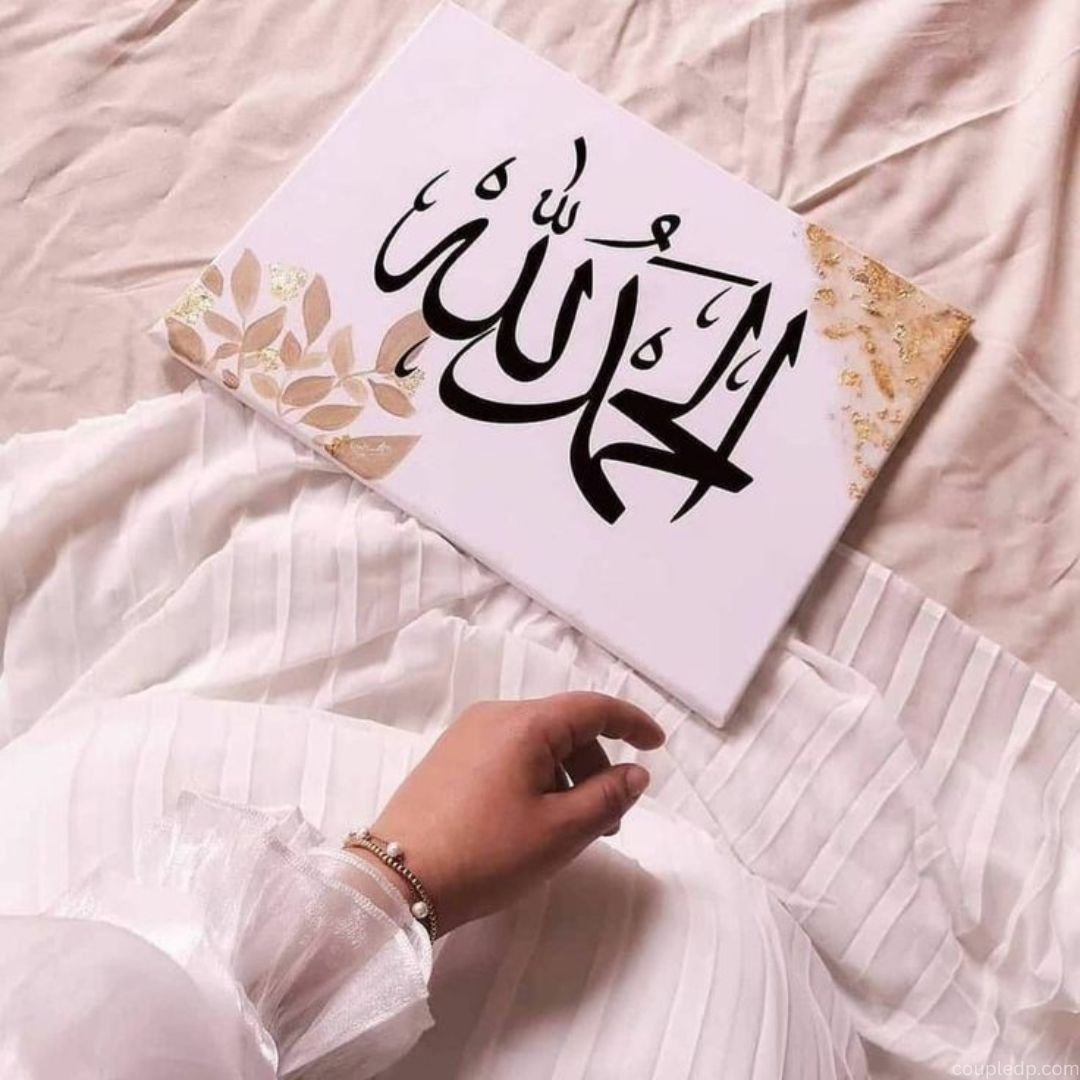 الحمدُ لله
coupledp.com